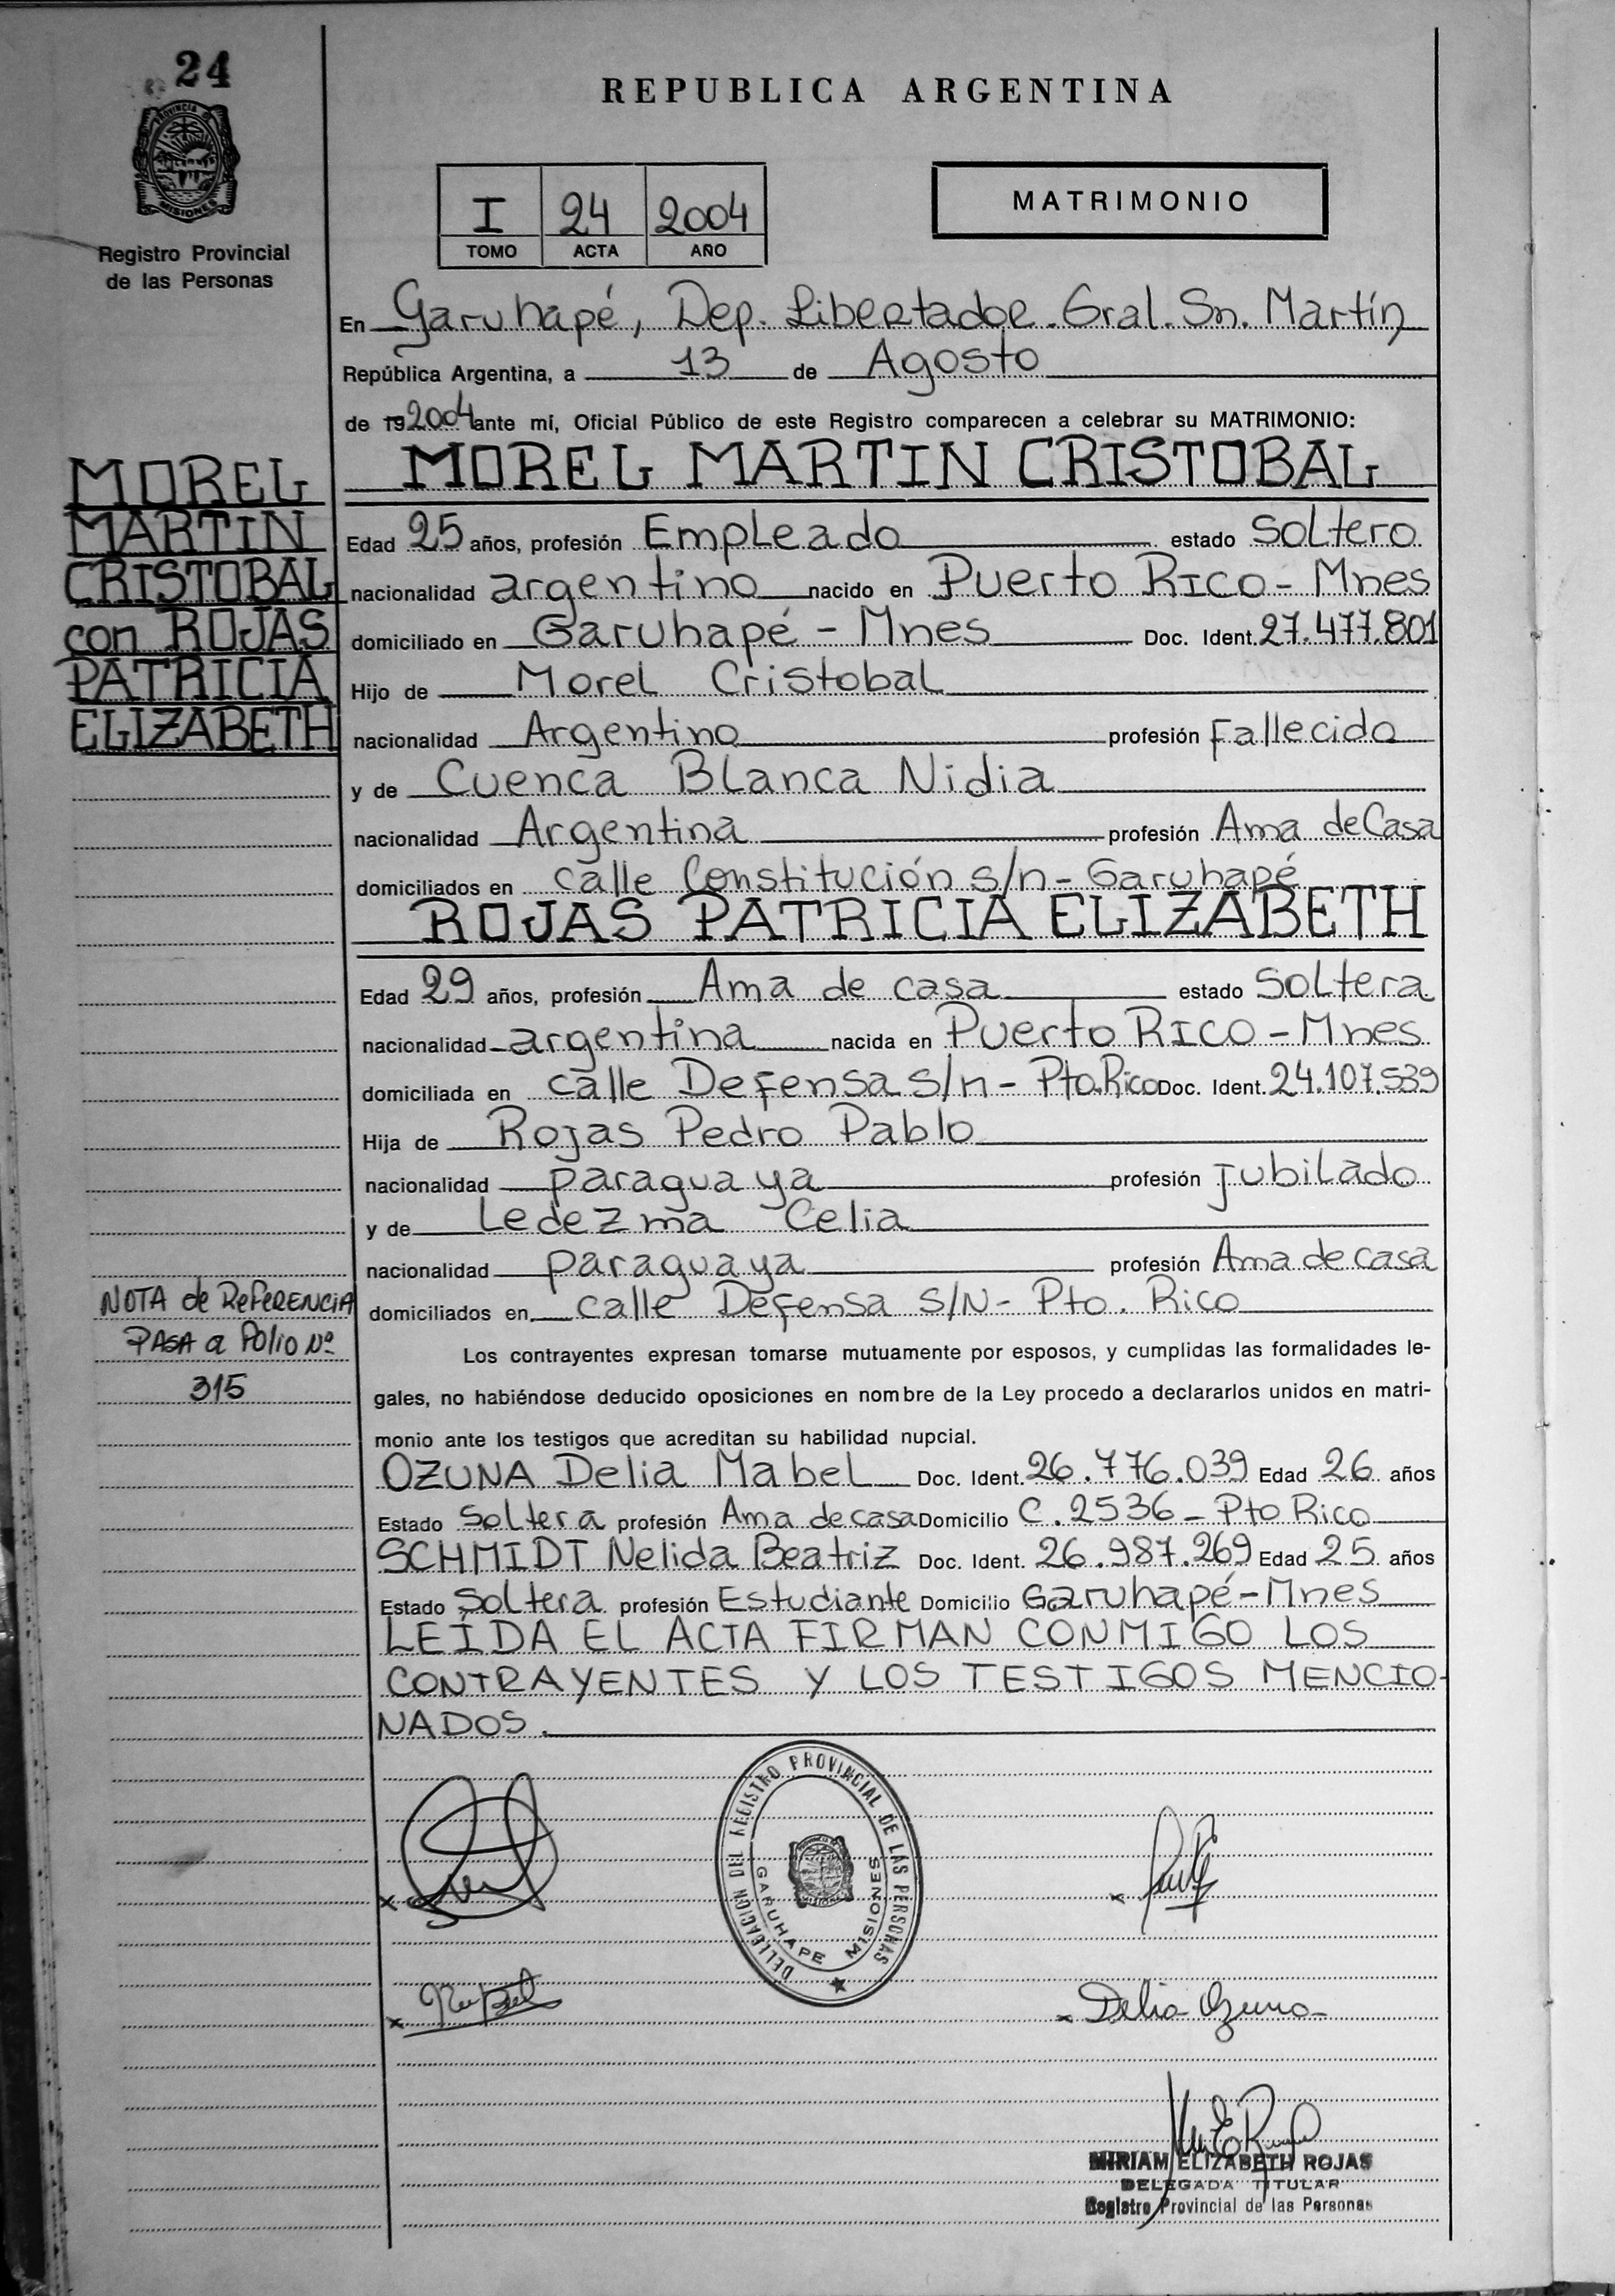 24
PROVINCIA DE
MISIONES
Registro Provincial
de las Personas
REPUBLICA ARGENTINA
I 24 2004
TOMO ACTA AÑO
MATRIMONIO
En Garuhapé, Dep. Libertador Gral. Sn. Martín
República Argentina, a 13 de Agosto
de 192004 ante mí, Oficial Público de este Registro comparecen a celebrar su MATRIMONIO:
MOREL MARTIN CRISTOBAL
MOREL
MARTIN
CRISTOBAL
con ROJAS
PATRICIA
ELIZABETH
Edad 25 años, profesión Empleado estado Soltero
nacionalidad argentino nacido en Puerto Rico - Mnes
domiciliado en Garuhapé - Mnes Doc. Ident. 27.477.801
Hijo de Morel Cristobal
nacionalidad Argentino profesión Fallecido
y de Cuenca Blanca Nidia
nacionalidad Argentina profesión Ama de Casa
domiciliados en calle Constitución s/n - Garuhapé
ROJAS PATRICIA ELIZABETH
Edad 29 años, profesión Ama de casa estado Soltera
nacionalidad argentina nacida en Puerto Rico - Mnes
domiciliada en calle Defensa s/n - Pto. Rico Doc. Ident. 24.107.539
Hija de Rojas Pedro Pablo
nacionalidad paraguaya profesión jubilado
y de Ledezma Celia
nacionalidad paraguaya profesión Ama de casa
domiciliados en calle Defensa S/N - Pto. Rico
NOTA de REFERENCIA
PASA a Folio Nº
315
Los contrayentes expresan tomarse mutuamente por esposos, y cumplidas las formalidades le-
gales, no habiéndose deducido oposiciones en nombre de la Ley procedo a declararlos unidos en matri-
monio ante los testigos que acreditan su habilidad nupcial.
OZUNA Delia Mabel Doc. Ident. 26.776.039 Edad 26 años
Estado Soltera profesión Ama de casa Domicilio C. 2536 - Pto Rico
SCHMIDT Nelida Beatriz Doc. Ident. 26.987.269 Edad 25 años
Estado Soltera profesión Estudiante Domicilio Garuhapé - Mnes
LEIDA EL ACTA FIRMAN CONMIGO LOS
CONTRAYENTES Y LOS TESTIGOS MENCIO-
NADOS.
DELEGACION DEL REGISTRO PROVINCIAL DE LAS PERSONAS
GARUHAPE MISIONES
x
x
x
x Delia Ozuna
MIRIAM ELIZABETH ROJAS
DELEGADA TITULAR
Registro Provincial de las Personas